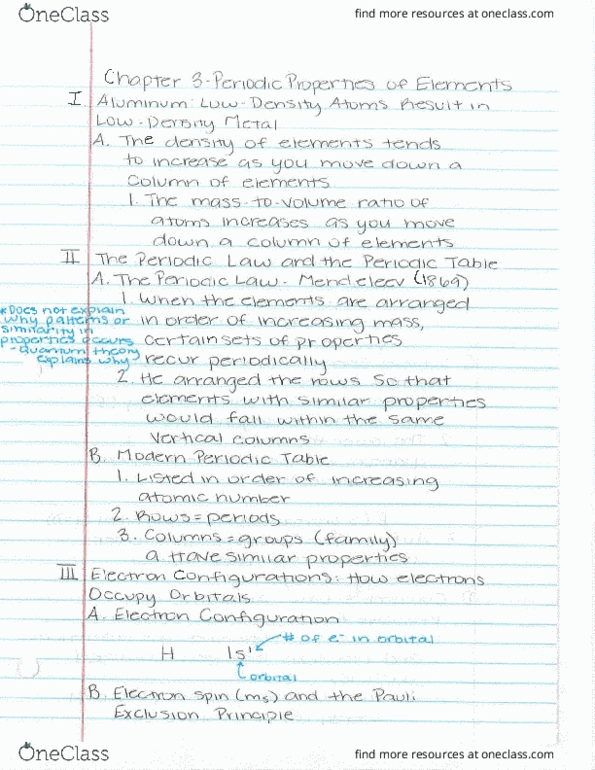 OneClass
find more resources at oneclass.com
Chapter 3-Periodic Properties of Elements
I Aluminum: Low-Density Atoms Result in
Low-Density Metal
A. The density of elements tends
to increase as you move down a
column of elements
1. The mass-to-volume ratio of
atoms increases as you move
down a column of elements
II The Periodic Law and the Periodic Table
A. The Periodic Law - Mendeleev (1869)
1. When the elements are arranged
in order of increasing mass,
certain sets of properties
recur periodically
*Does not explain
why patterns or
similarity in
properties occurs
-Quantum theory
explains why
2. He arranged the rows so that
elements with similar properties
would fall within the same
vertical columns
B. Modern Periodic Table
1. Listed in order of increasing
atomic number
2. Rows = periods
3. Columns = groups (family)
a. Have similar properties
III Electron Configurations: How electrons
Occupy Orbitals
A. Electron Configuration
# of e⁻ in orbital
H 1s¹
orbital
B. Electron spin (ms) and the Pauli
Exclusion Principle
OneClass
find more resources at oneclass.com